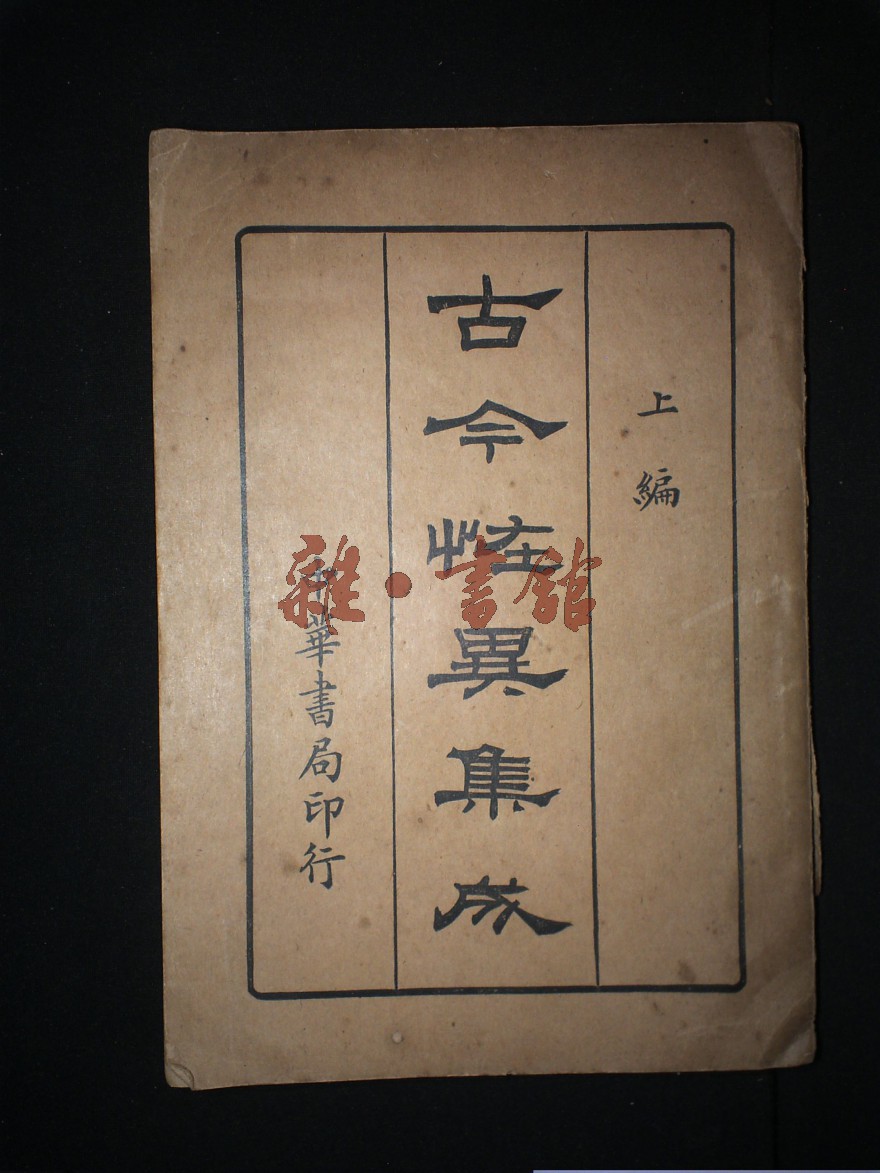 上編
古今恠異集成
中華書局印行
雜•書館